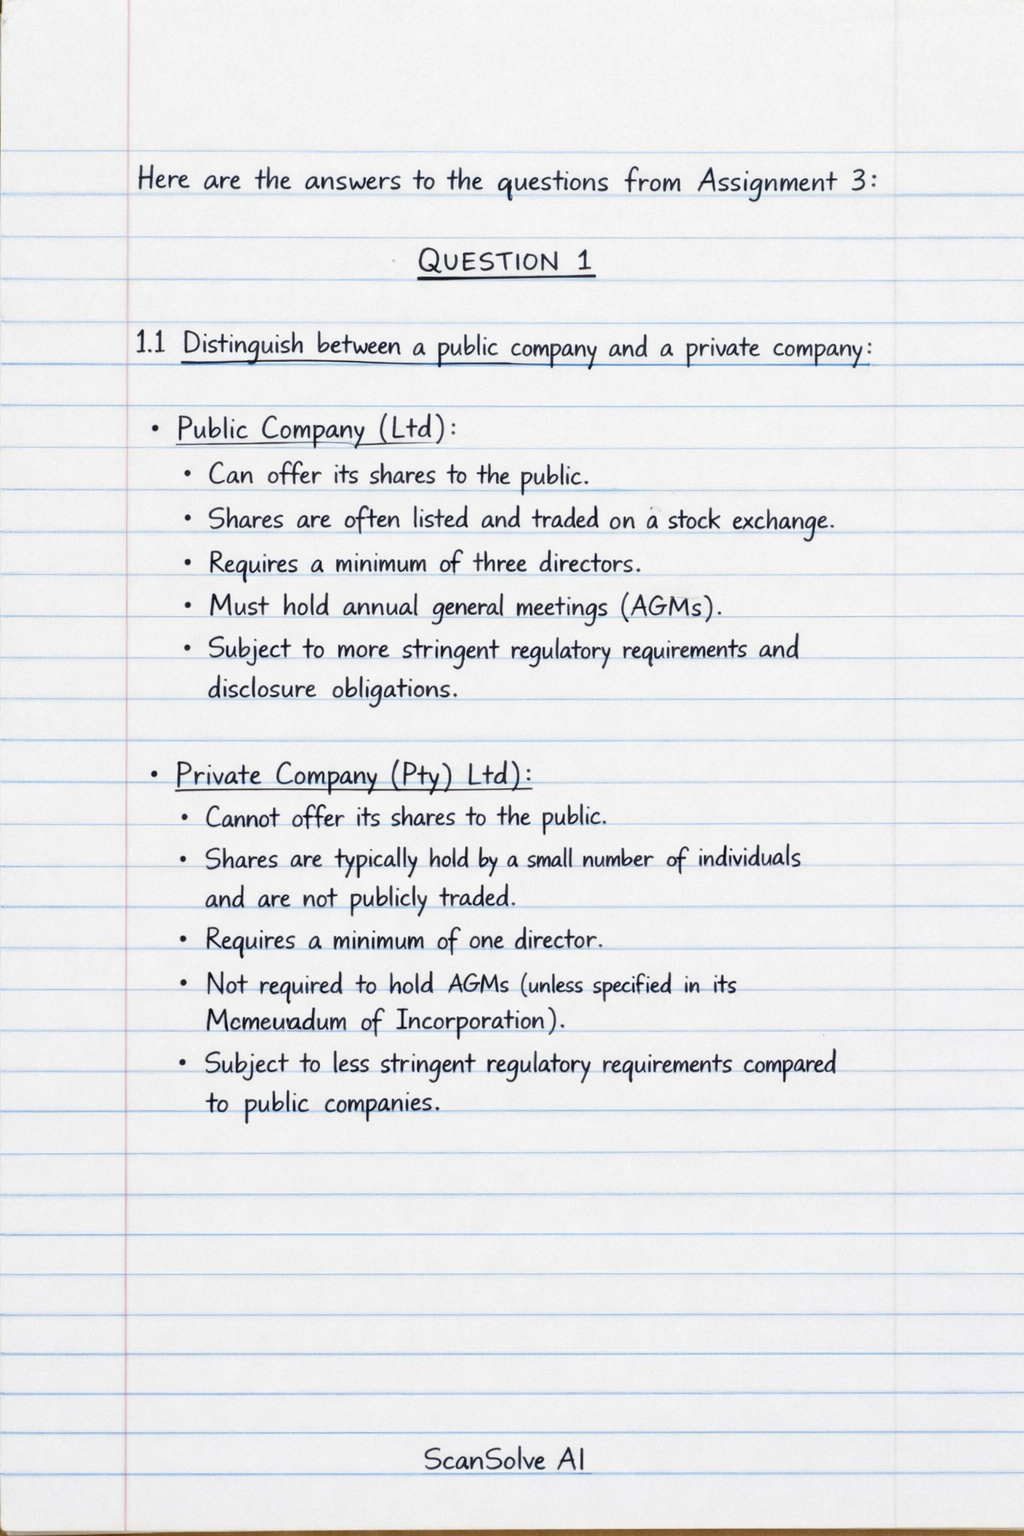 Here are the answers to the questions from Assignment 3:
QUESTION 1
1.1 Distinguish between a public company and a private company:
• Public Company (Ltd):
• Can offer its shares to the public.
• Shares are often listed and traded on a stock exchange.
• Requires a minimum of three directors.
• Must hold annual general meetings (AGMs).
• Subject to more stringent regulatory requirements and
disclosure obligations.
• Private Company (Pty) Ltd):
• Cannot offer its shares to the public.
• Shares are typically hold by a small number of individuals
and are not publicly traded.
• Requires a minimum of one director.
• Not required to hold AGMs (unless specified in its
Mcmeuadum of Incorporation).
• Subject to less stringent regulatory requirements compared
to public companies.
ScanSolve AI